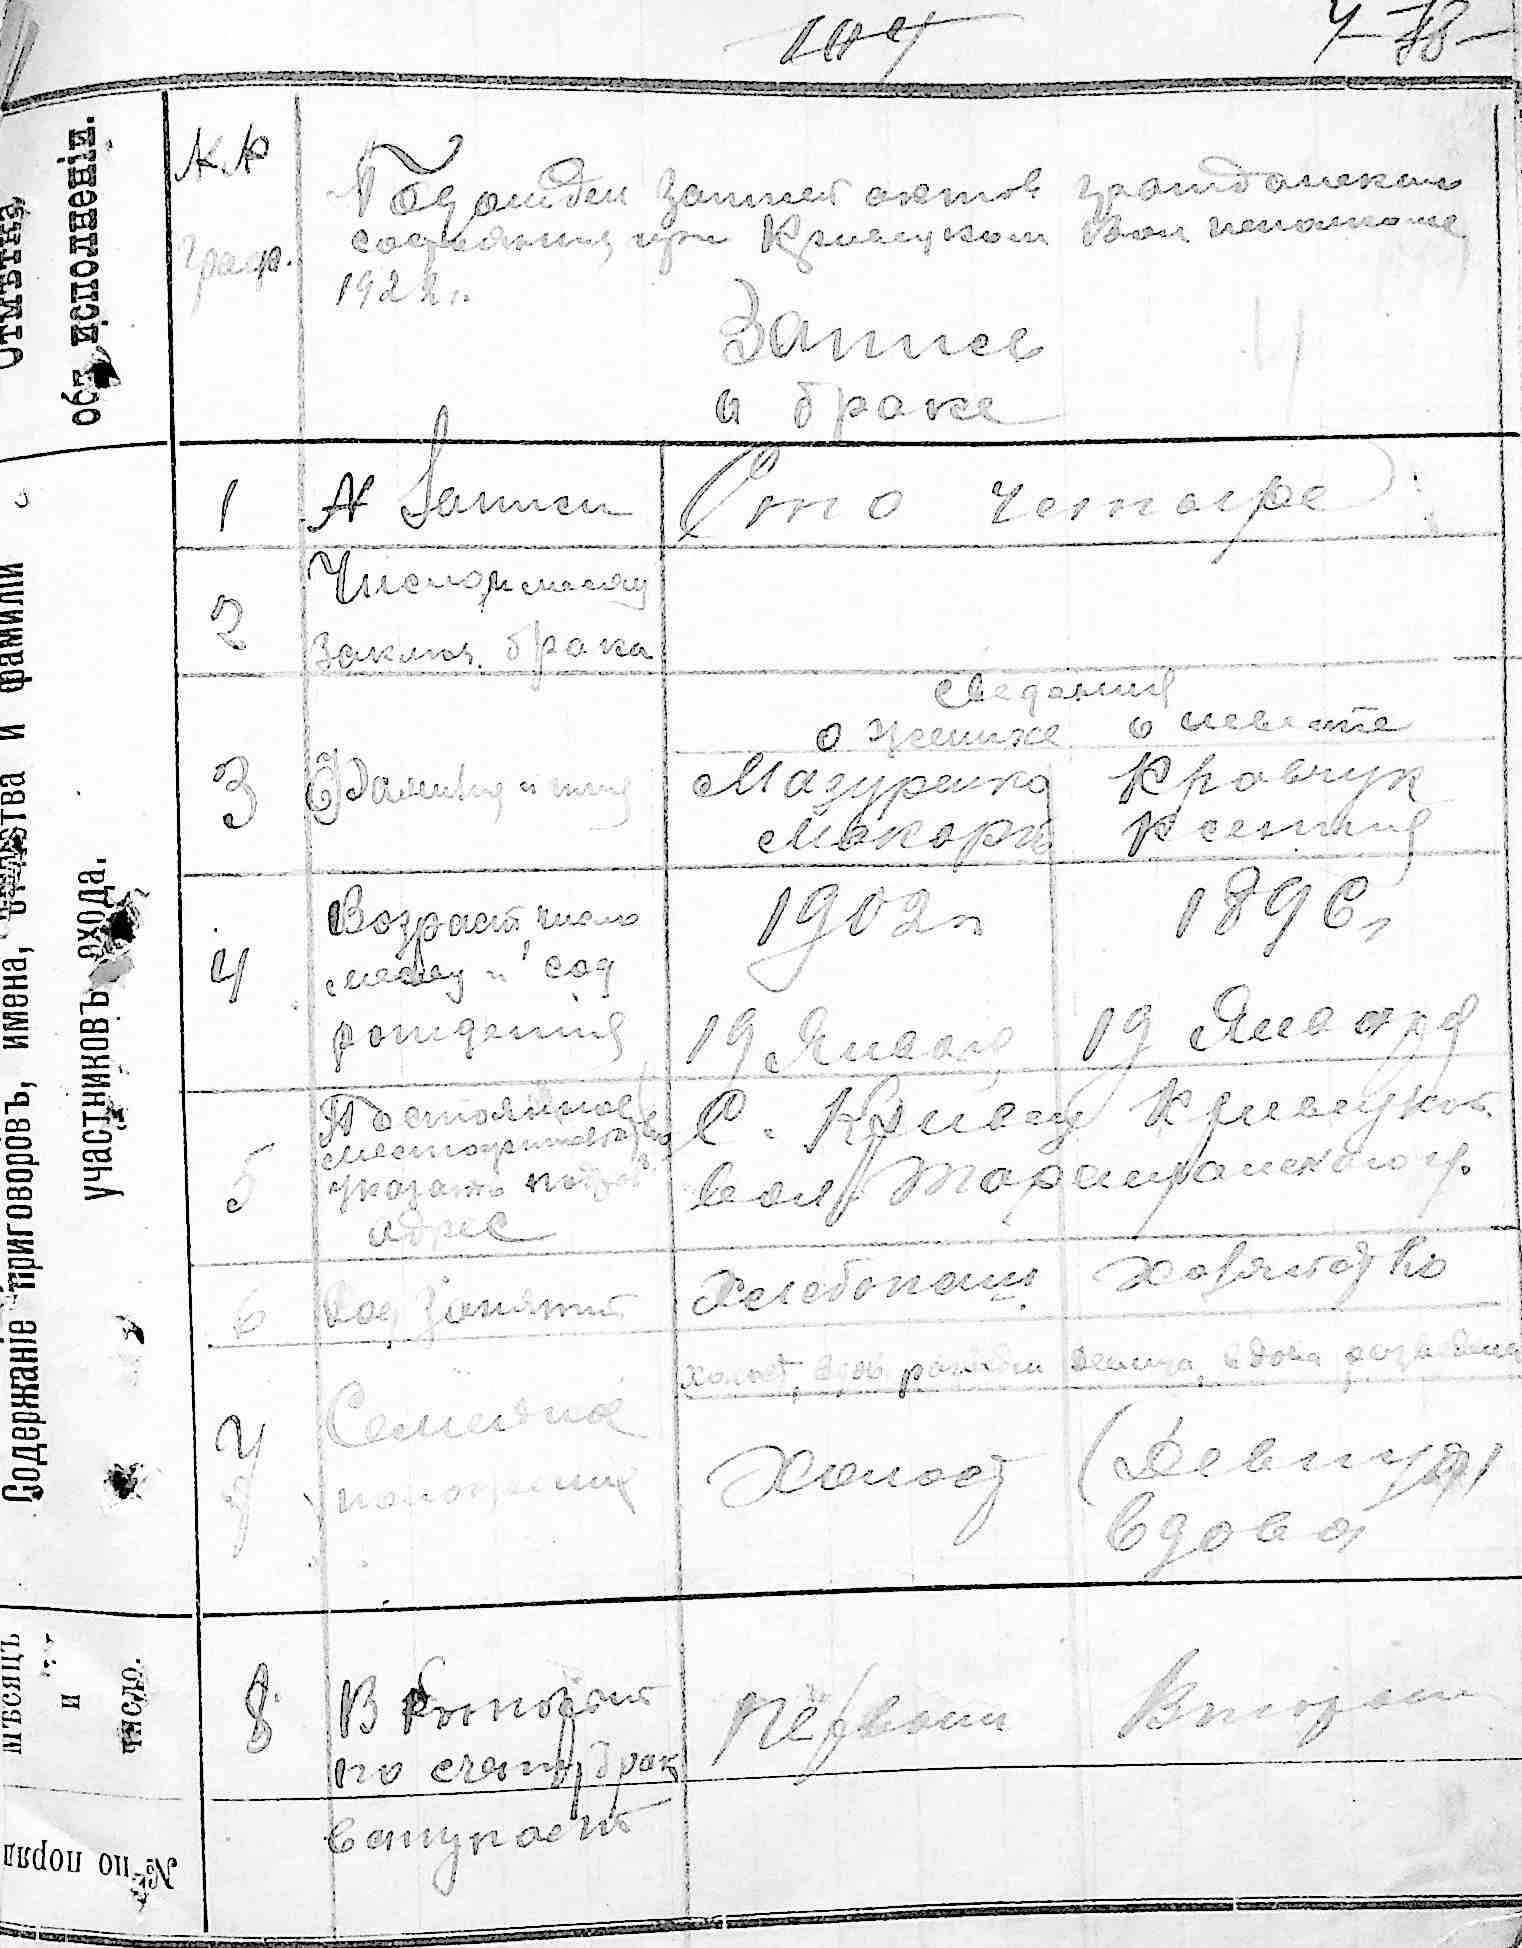 104
№№
граф.
Подотдел записей актов гражданск
состояния при Кривецком Вол исполкоме
1922 г.
Запись
о браке
1 № Записи Сто четыре
2 Число и месяц
заключ. брака
сведения
о женихе о невесте
3 Фамилия и имя Мазуренко Кравчук
Макарий Ксения
4 Возраст, число
месяц и год
рождения
1902 г. 1896 г.
19 Января 19 Января
5 Постоянное
местожительство
указать подроб.
адрес
С. Кривец Кривецкой
вол. Таращанского у.
6 Род занятий Хлебопаш. Хозяйство
холост, вдов, разведен девица, вдова разведена
7 Семейное
положение
Холост (Девица)
вдова
8 В который
по счету брак
вступает
Первый Второй
Отмѣтка
объ исполненіи.
Содержаніе приговоровъ, имена, отчества и фамиліи
участниковъ схода.
Мѣсяцъ
и
число.
№ по поряд